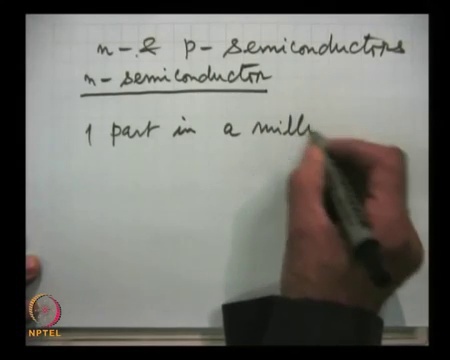 n- & p- semiconductors
n- semiconductor
1 part in a mill
NPTEL